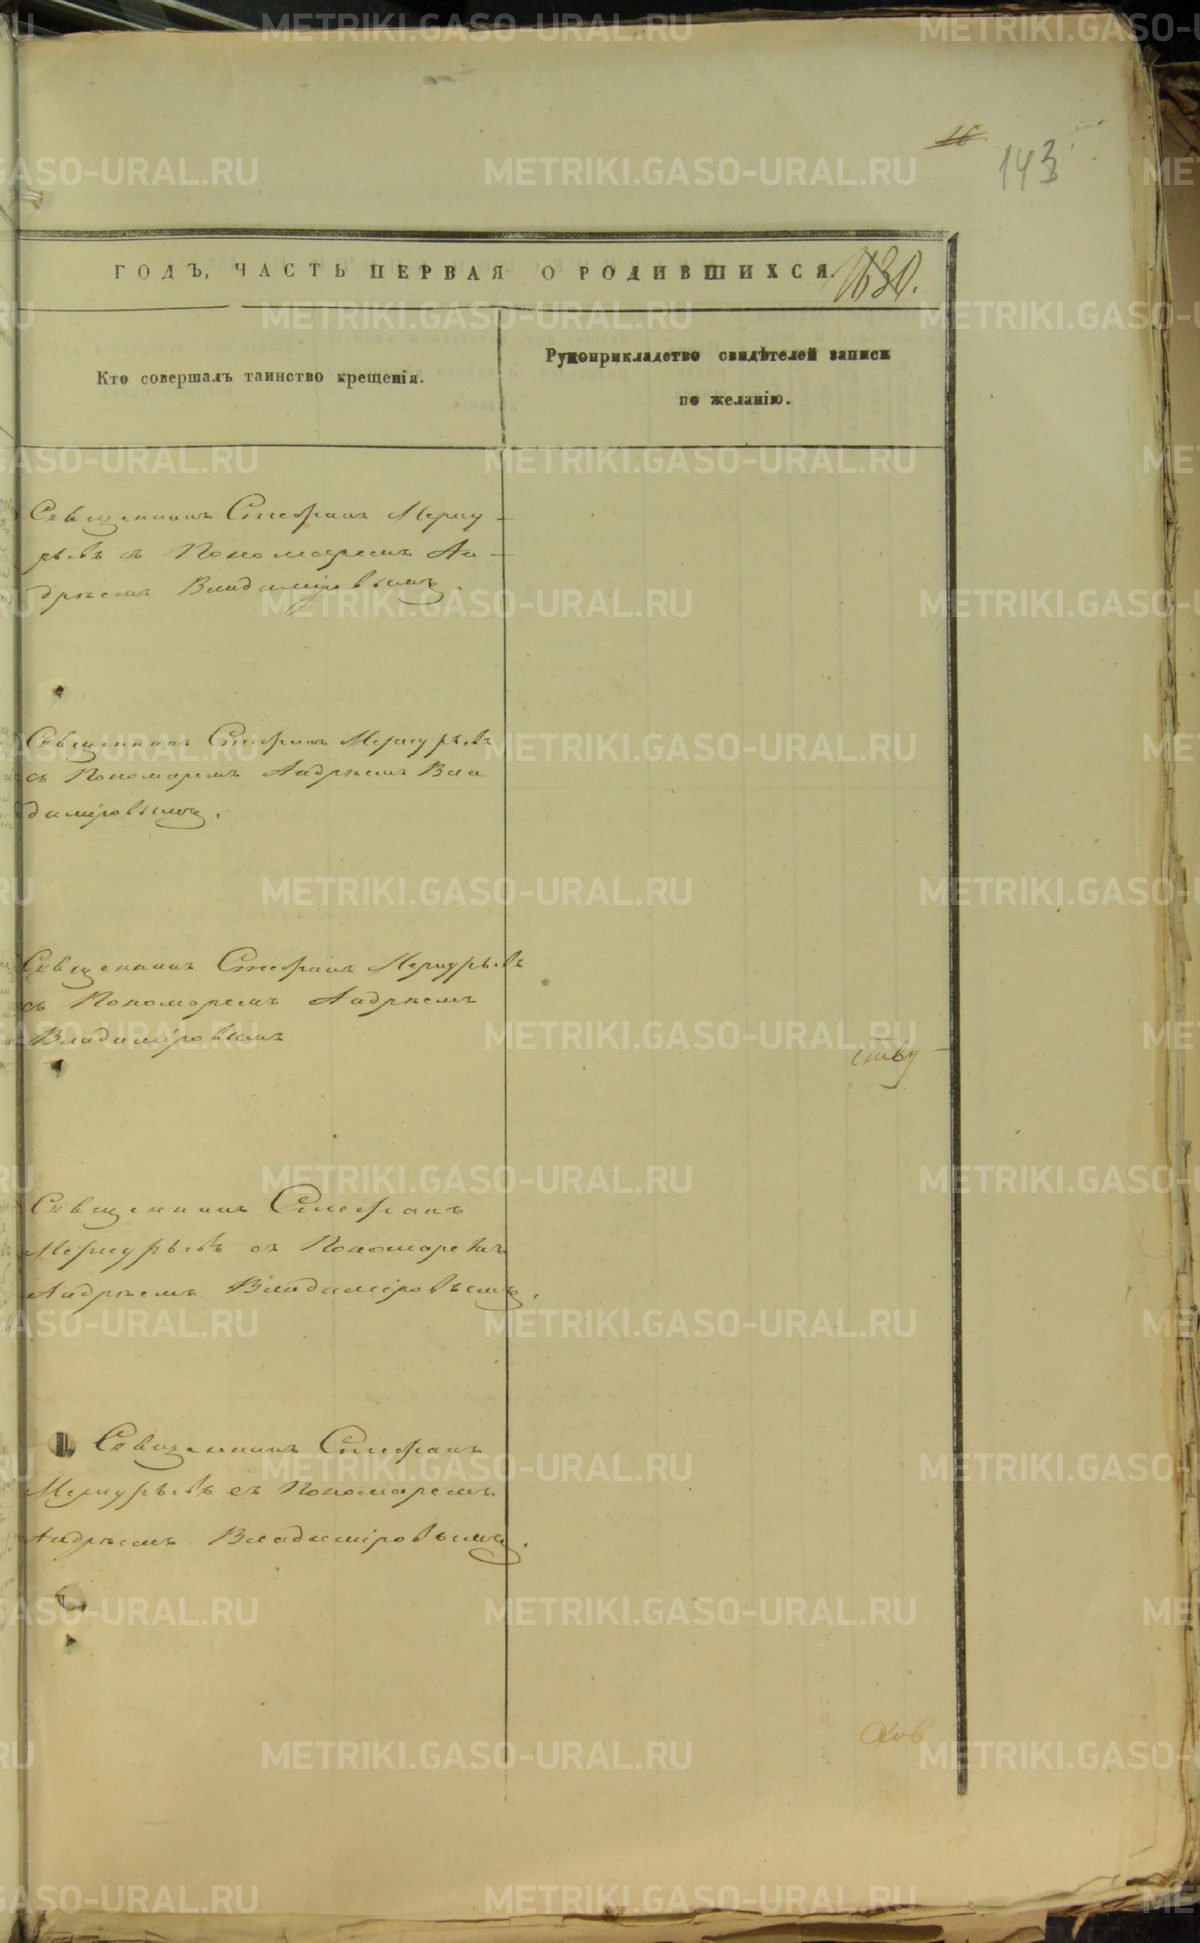 16
143
ГОДЪ, ЧАСТЬ ПЕРВАЯ О РОДИВШИХСЯ.
Кто совершалъ таинство крещенія.
Рукоприкладство свидѣтелей записи
по желанію.
Священникъ Стефанъ Мерку-
рьевъ съ Пономаремъ Ан-
дреемъ Владиміровымъ.
Священникъ Стефанъ Меркурьевъ
съ Пономаремъ Андреемъ Вла
диміровымъ.
Священникъ Стефанъ Меркурьевъ
съ Пономаремъ Андреемъ
Владиміровымъ
ству
Священникъ Стефанъ
Меркурьевъ съ Пономаремъ
Андреемъ Владиміровымъ.
Священникъ Стефанъ
Меркурьевъ съ Пономаремъ
Андреемъ Владиміровымъ.
METRIKI.GASO-URAL.RU